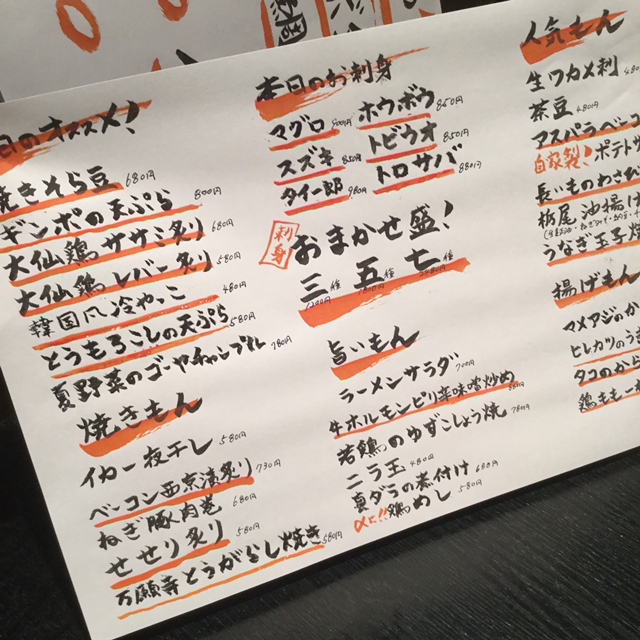 日のオススメ!
焼きそら豆 680円
ギンポの天ぷら 800円
大仙鶏ササミ炙り 680円
大仙鶏レバー炙り 580円
韓国風冷やっこ 480円
とうもろこしの天ぷら 580円
夏野菜のゴーヤチャンプル 780円
焼きもん
イカ一夜干し 580円
ベーコン西京漬炙り 730円
ねぎ豚肉巻 680円
せせり炙り 580円
万願寺とうがらし焼き 580円
本日のお刺身
マグロ 900円
スズキ 850円
タイ一郎 980円
ホウボウ 850円
トビウオ 850円
トロサバ 880円
刺身
おまかせ盛!
三種 五種 七種
旨いもん
ラーメンサラダ 700円
牛ホルモンピリ辛味噌炒め
若鶏のゆずこしょう焼 780円
ニラ玉 480円
真ダラの煮付け 680円
〆に!!鶏めし 580円
人気もん
生ワカメ刺 480
茶豆 480円
アスパラベーコ
自家製!ポテトサ
長いものわさび
栃尾 油揚げ
うなぎ玉子焼
揚げもん
マメアジのか
ヒレカツのうま
タコのから
鶏もも一